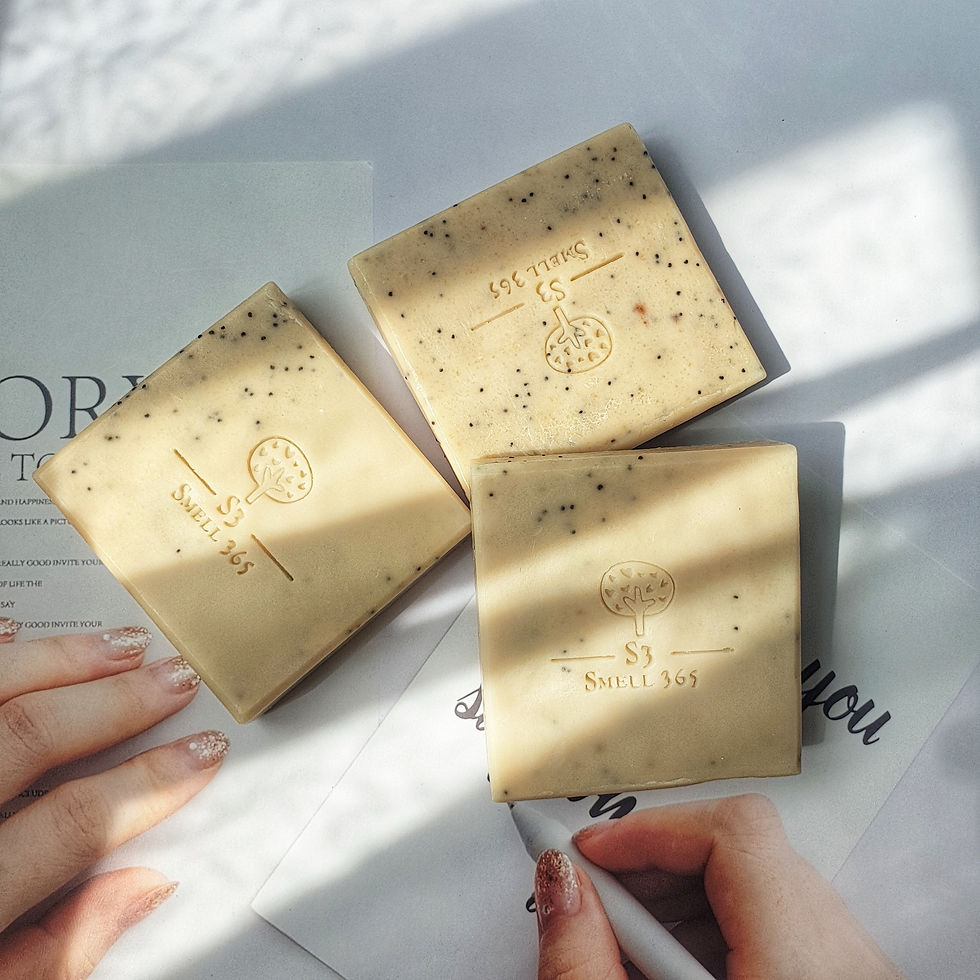 S3
SMELL 365
S3
SMELL 365
S3
SMELL 365
ORY
TO
AND HAPPINESS
LOOKS LIKE A PICT
REALLY GOOD INVITE YOUR
OF LIFE THE
SAY
GOOD INVITE YOUR
you